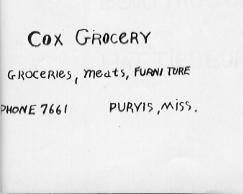 Cox Grocery
Groceries, meats, Furniture
Phone 7661 Purvis, Miss.